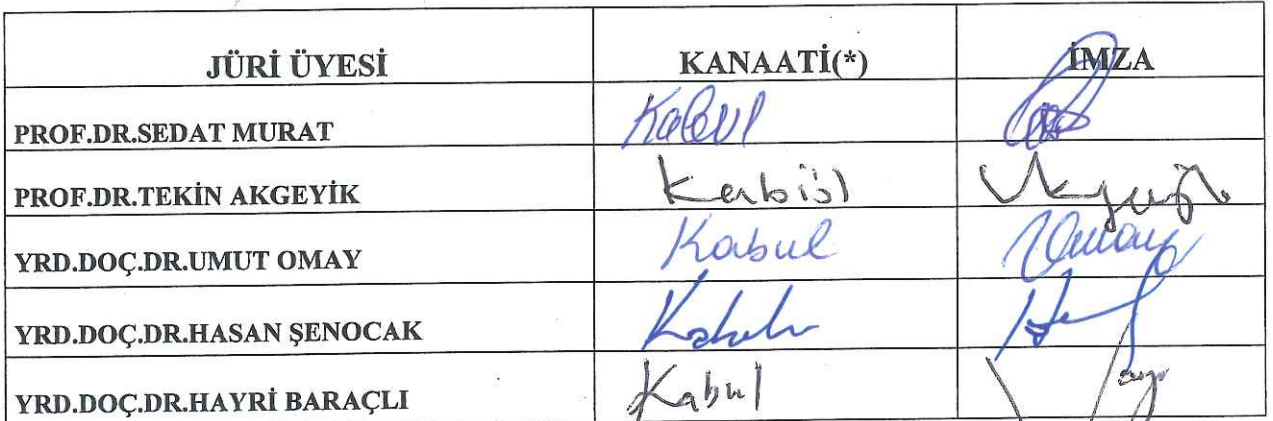 JÜRİ ÜYESİ KANAATİ(*) İMZA
PROF.DR.SEDAT MURAT Kabul
PROF.DR.TEKİN AKGEYİK Kabül
YRD.DOÇ.DR.UMUT OMAY Kabul
YRD.DOÇ.DR.HASAN ŞENOCAK Kabul
YRD.DOÇ.DR.HAYRİ BARAÇLI Kabul